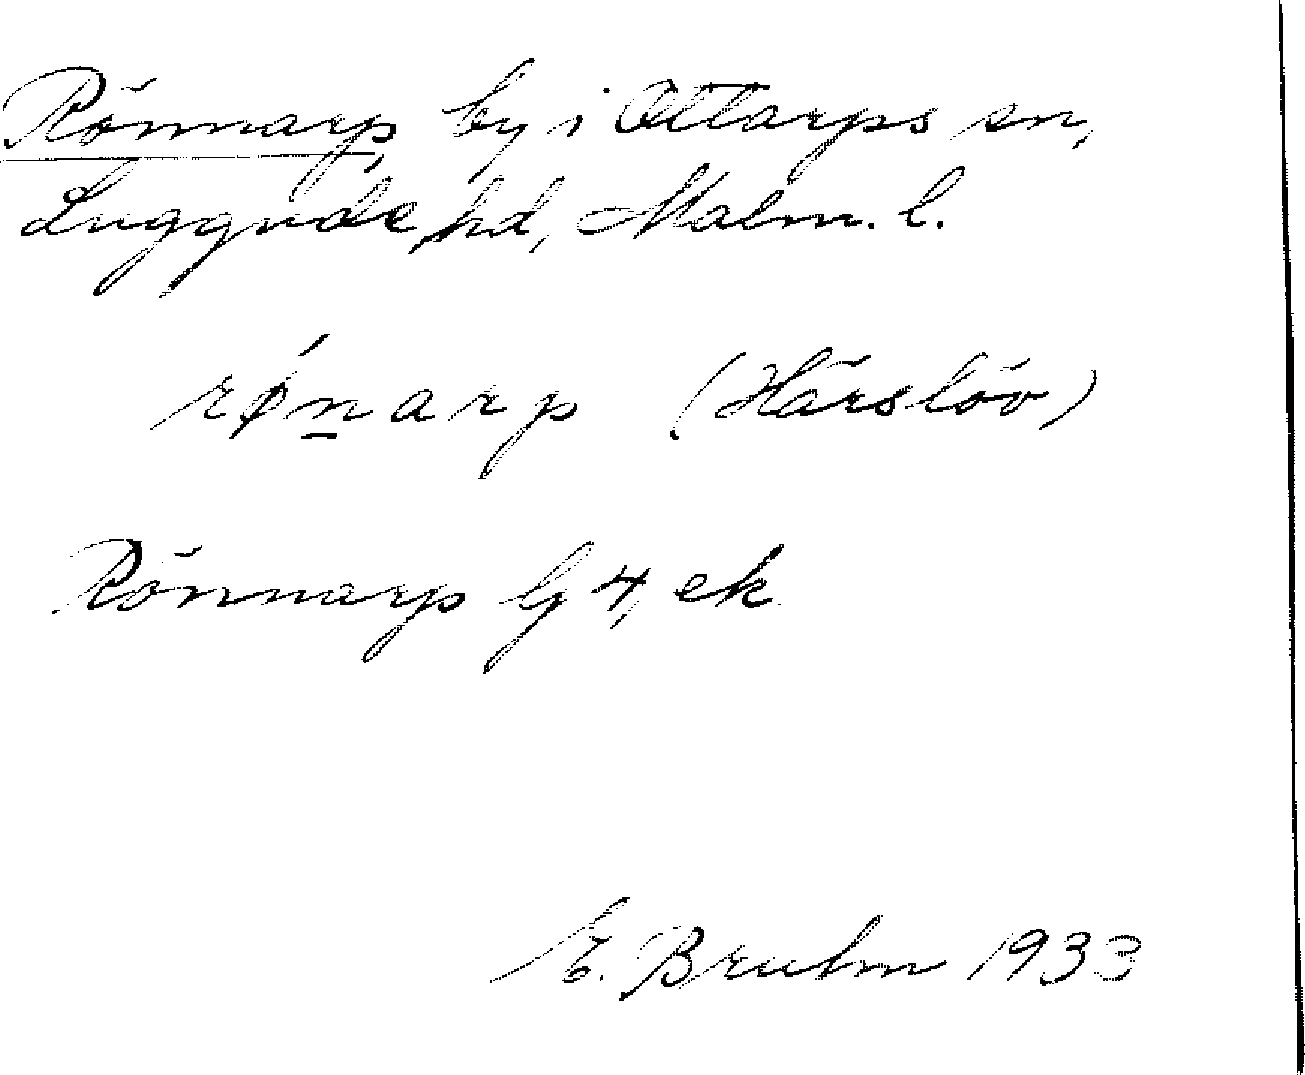 Rönnarp, by i Ottarps sn,
Luggude hd, Malm. l.
rǿn̲arp (Härslöv)
Rönnarp by 4, ek
E. Bruhn 1933